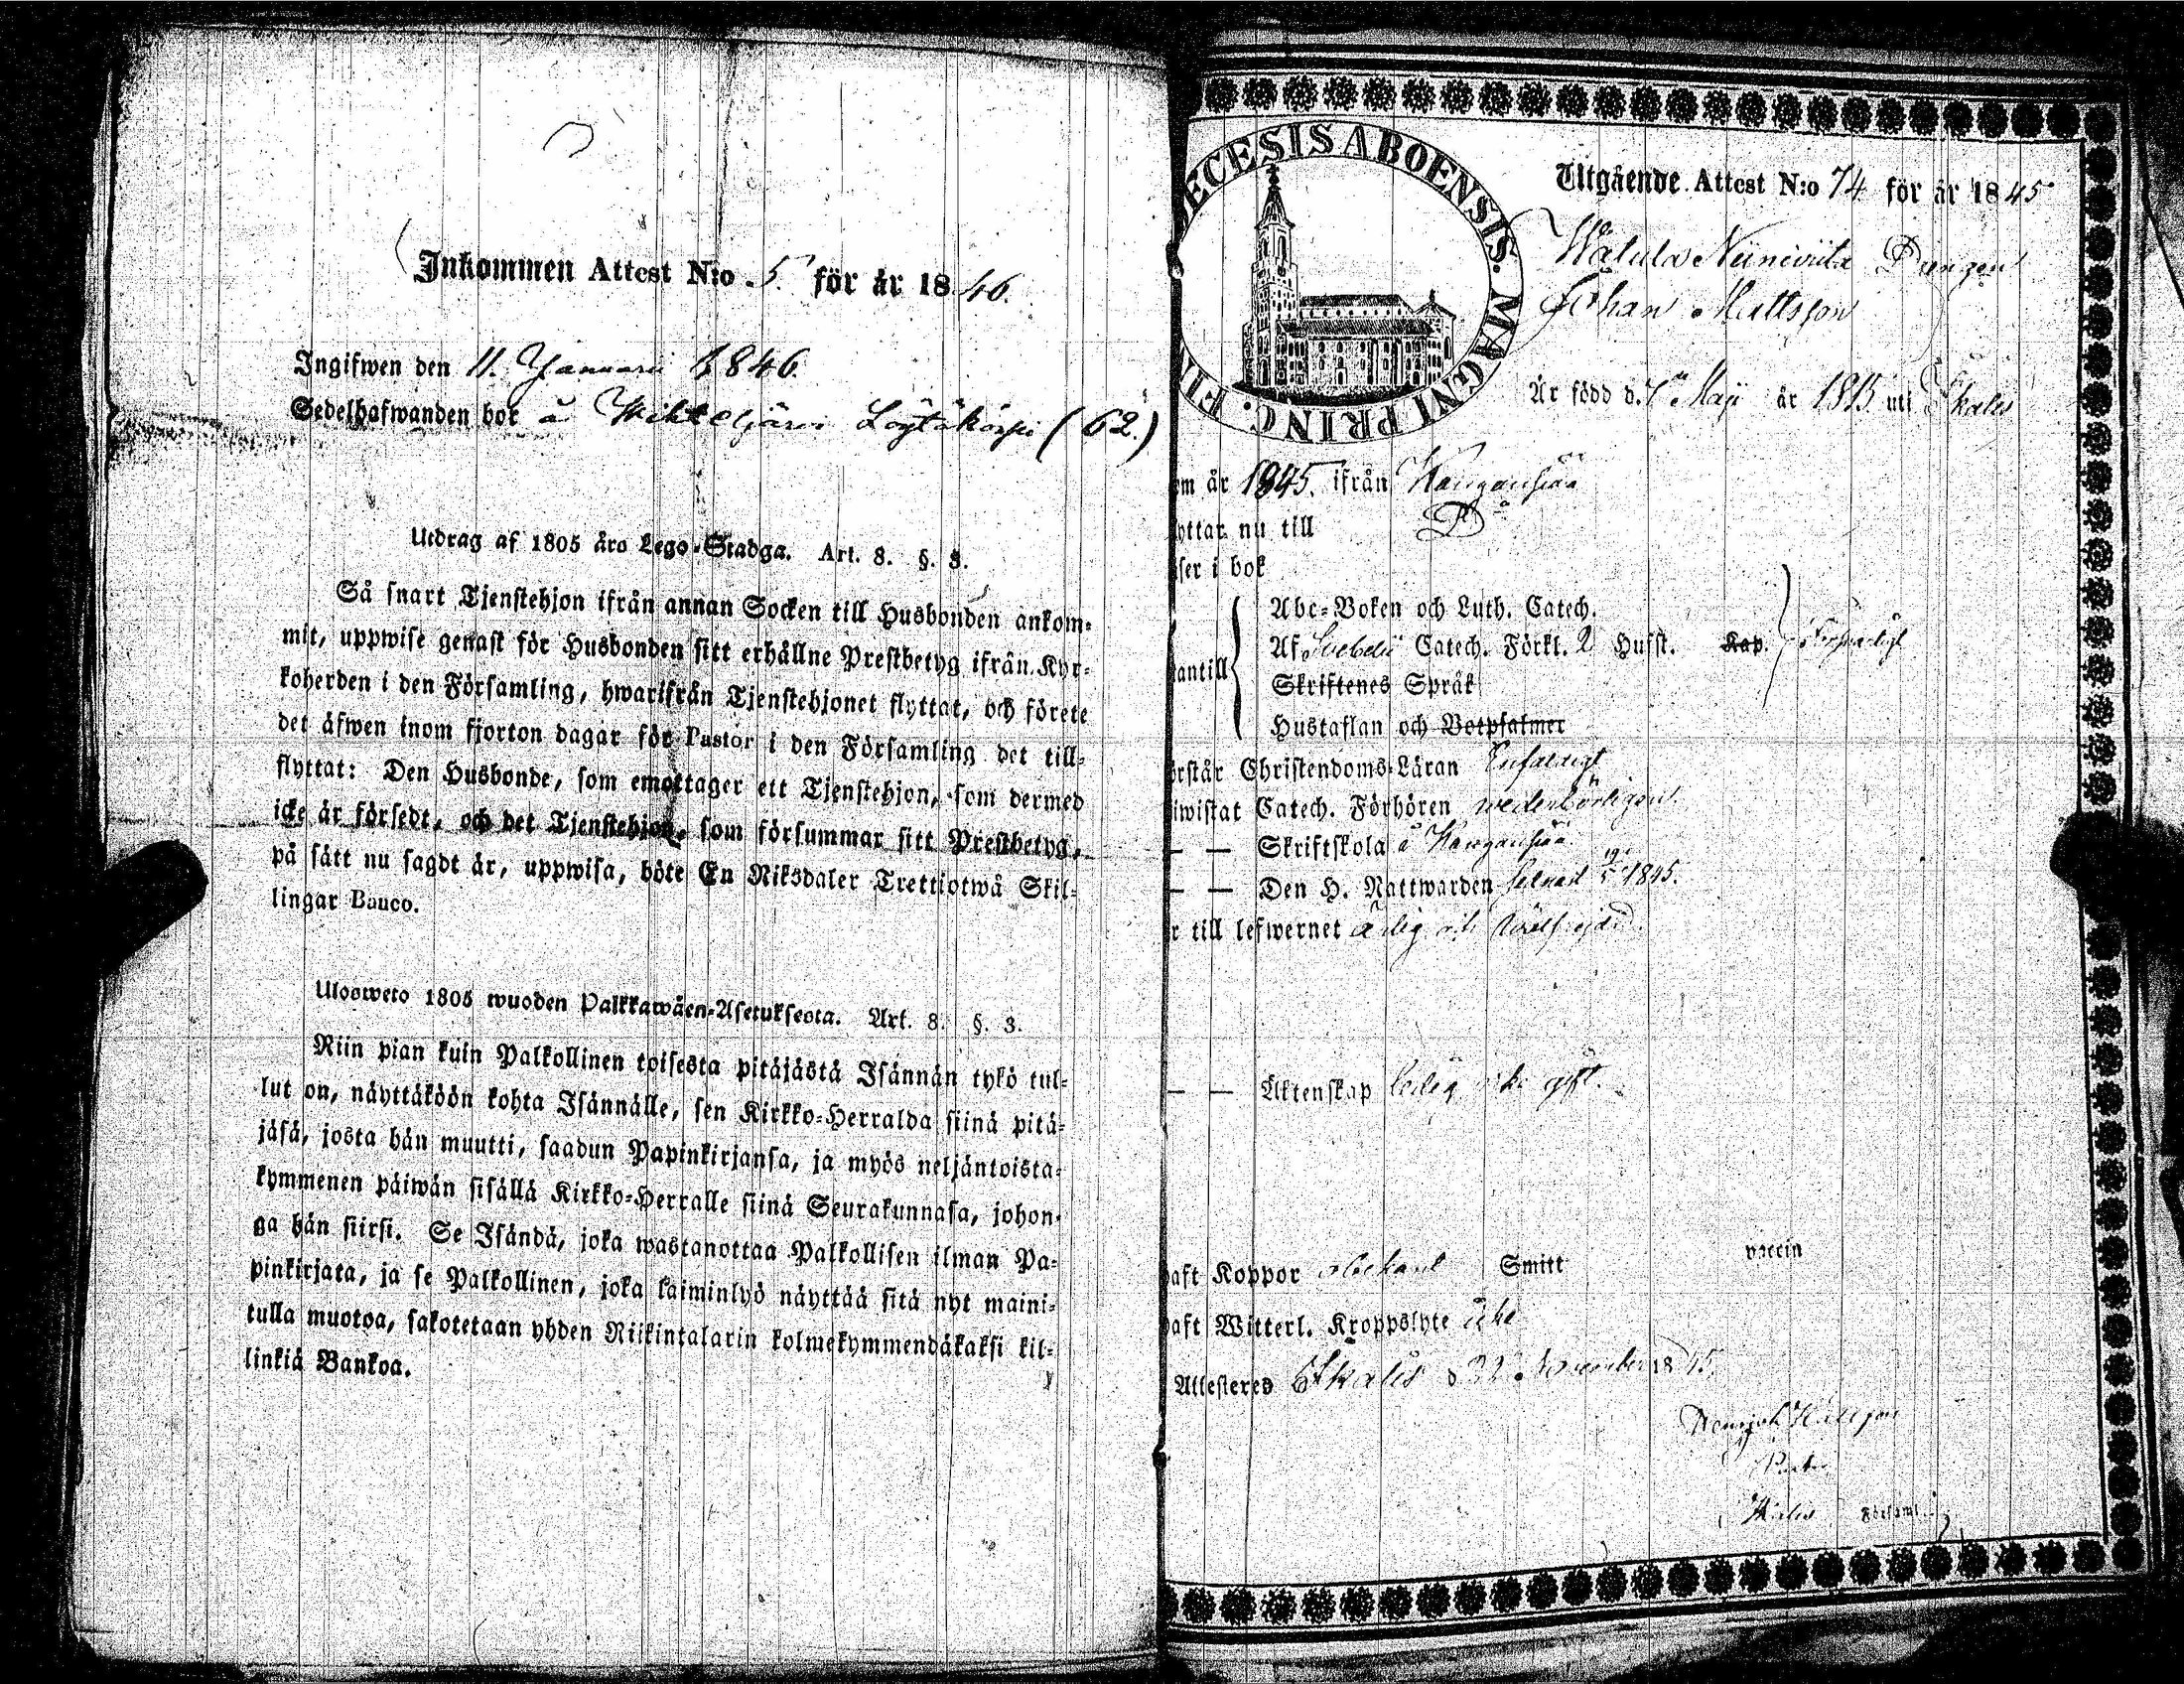 Inkommen Attest N:o 5. för år 1846.
Ingifwen den 11. Januari 1846.
Sedelhafwanden bor å (62.)
Utdrag af 1805 års Lego-Stadga. Art. 8. §. 3.
Så snart Tjenstehjon ifrån annan Socken till Husbonden ankom-
mit, uppwise genast för Husbonden sitt erhållne Prestbetyg ifrån Kyr-
koherden i den Församling, hwarifrån Tjenstehjonet flyttat, och förete
det äfwen inom fjorton dagar för Pastor i den Församling det till-
flyttat: Den Husbonde, som emottager ett Tjenstehjon, som dermed
icke är försedt, och det Tjenstehjon, som försummar sitt Prestbetyg,
på sätt nu sagdt är, uppwisa, böte En Riksdaler Trettiotwå Skil-
lingar Banco.
Ulosweto 1805 wuoden Palkkawäen-Asetuksesta. Art. 8. §. 3.
Niin pian kuin Palkollinen toisesta pitäjästä Isännän tykö tul-
lut on, näyttäköön kohta Isännälle, sen Kirkko-Herralda siinä pitä-
jäsä, josta hän muutti, saadun Papinkirjansa, ja myös neljäntoista-
kymmenen päiwän sisällä Kirkko-Herralle siinä Seurakunnasa, johon-
ga hän siirsi. Se Isändä, joka wastanottaa Palkollisen ilman Pa-
pinkirjata, ja se Palkollinen, joka laiminlyö näyttää sitä nyt maini-
tulla muotoa, sakotetaan yhden Riikintalarin kolmekymmendäkaksi kil-
linkiä Bankoa.
ECESIS ABOENSIS. MAGNI PRINC. FI
Utgående Attest N:o 74 för år 1845
Drengen
Johan Mattsson
Är född d. 7 Maji år 1815 uti Skales
om år 1845. ifrån Kangansjää
yttar nu till D:o
ser i bok
antill
Abc-Boken och Luth. Catech.
Af Svebelii Catech. Förkl. 2 Hufst. Kap. Försvarligt
Skriftenes Språk
Hustaflan och Botpsalmer
örstår Christendoms-Läran Enfaldigt
iwistat Catech. Förhören wederbörligen
— — Skriftskola å Kangansjää
— — Den H. Nattwarden 1845.
r till lefwernet ärlig och wälfrejdad
— — Äktenskap ledig
haft Koppor obekant Smitt vaccin
haft Witterl. Kroppslyte icke
Attesteres Skales d November 1845.
Pastor
Församl.